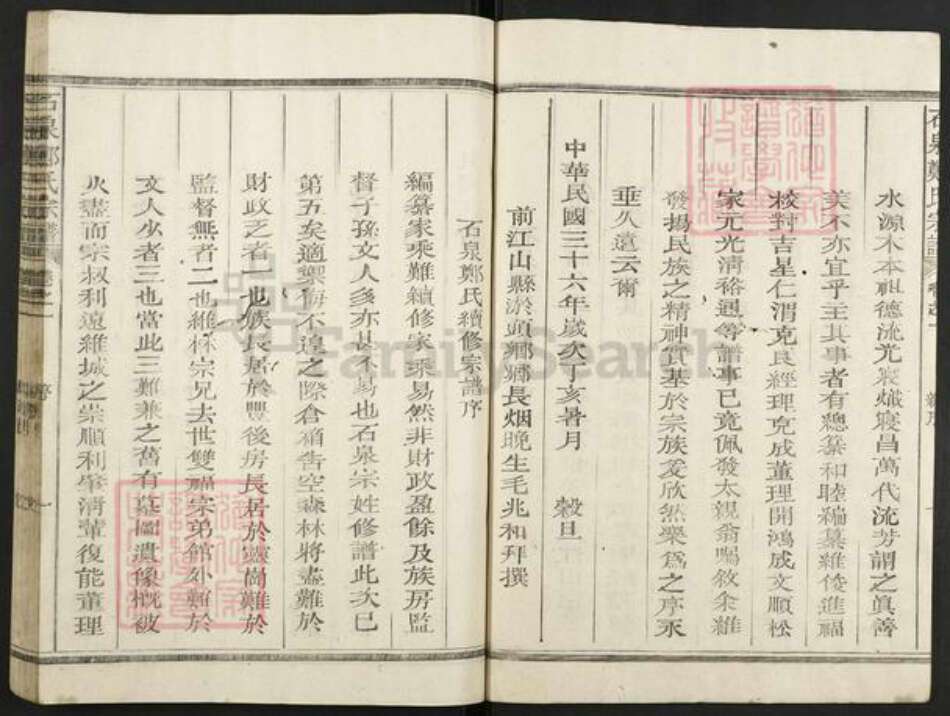 石泉鄭氏宗譜
水源木本祖德流光寢熾寢昌萬代流芳謂之眞善
美不亦宜乎主其事者有總纂和睦編纂維俊進福
校對吉星仁渭克良經理克成董理開鴻成文順松
家元光清裕通等譜事已竟佩發太親翁囑敘余維
發揚民族之精神實基於宗族爰欣然樂爲之序永
垂久遠云爾
中華民國三十六年歲次丁亥暑月 穀旦
前江山縣淤頭鄉鄉長烟晚生毛兆和拜撰
石泉鄭氏續修宗譜序
編纂家乘難續修家乘易然非財政盈餘及族房監
督子孫文人多亦甚不易也石泉宗姓修譜此次已
第五矣適禦侮不遑之際倉箱告空森林將盡難於
財政乏者一也族長居於豐後房長居於靈崗難於
監督無者二也維林宗兄去世雙福宗弟館外難於
文人少者三也當此三難兼之舊有墓圖遺像概被
火盡而宗叔利遠維城之崇順利肇清輩復能董理
石泉鄭氏宗譜
FamilySearch